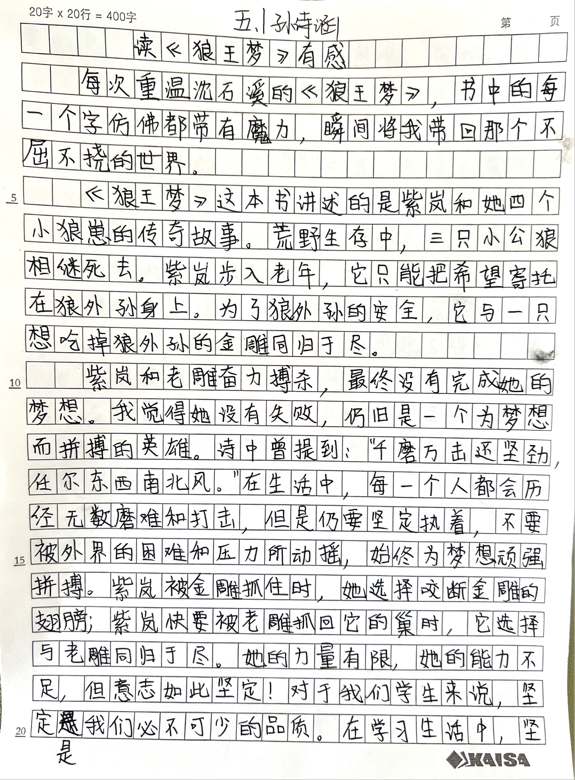 20字 x 20行 = 400字
五.1 孙诗涵
第 页
读《狼王梦》有感
每次重温沈石溪的《狼王梦》，书中的每
一个字仿佛都带有魔力，瞬间将我带回那个不
屈不挠的世界。
5
《狼王梦》这本书讲述的是紫岚和她四个
小狼崽的传奇故事。荒野生存中，三只小公狼
相继死去。紫岚步入老年，它只能把希望寄托
在狼外孙身上。为了狼外孙的安全，它与一只
想吃掉狼外孙的金雕同归于尽。
10
紫岚和老雕奋力搏杀，最终没有完成她的
梦想。我觉得她没有失败，仍旧是一个为梦想
而拼搏的英雄。诗中曾提到：“千磨万击还坚劲，
任尔东西南北风。”在生活中，每一个人都会历
经无数磨难和打击，但是仍要坚定执着，不要
15
被外界的困难和压力所动摇，始终为梦想顽强
拼搏。紫岚被金雕抓住时，她选择咬断金雕的
翅膀；紫岚快要被老雕抓回它的巢时，它选择
与老雕同归于尽。她的力量有限，她的能力不
足，但意志如此坚定！对于我们学生来说，坚
20
定是我们必不可少的品质。在学习生活中，坚
KAISA